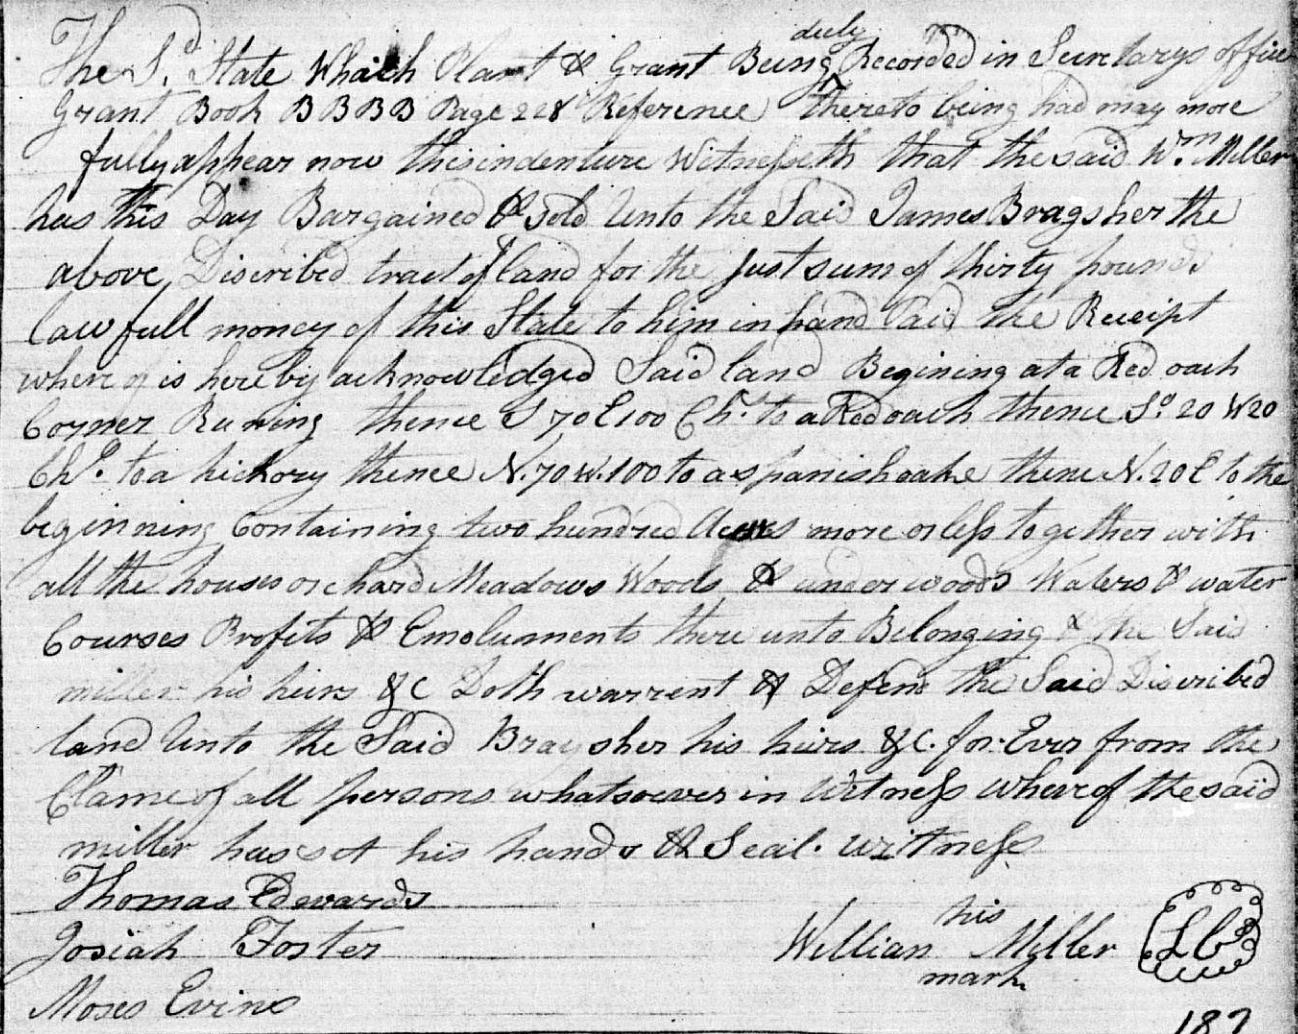 The Sd. State Which Plant & Grant Being duly Recorded in Secretarys office
Grant Book B B B B Page 228 Reference thereto being had may more
fully appear now this indenture Witnesseth that the said Wm. Miller
has this Day Bargained & sold Unto the Said James Bragsher the
above Discribed tract of land for the Just sum of thirty pounds
lawfull money of this State to him in hand Paid the Receipt
where of is hereby acknowledged Said land Begining at a Red oach
Corner Runing thence S 70 E 100 Chs. to a Red oach thence So. 20 W 20
Chs. to a hickory thence N. 70 W. 100 to a spanish oake thene N. 20 E to the
beginning Containing two hundred Acres more or less together with
all the houses orchard Meadows Woods & under woods Waters & water
Courses Profits & Emoluments there unto Belonging & the Said
miller his heirs &C Doth warrent & Defend the Said Discribed
land Unto the Said Braysher his heirs &C. for Ever from the
Clame of all persons whatsoever in Witness whereof the said
miller has set his hand & Seal. Witness
Thomas Edwards
his
Josiah Foster William Miller LS
mark
Moses Evins
182